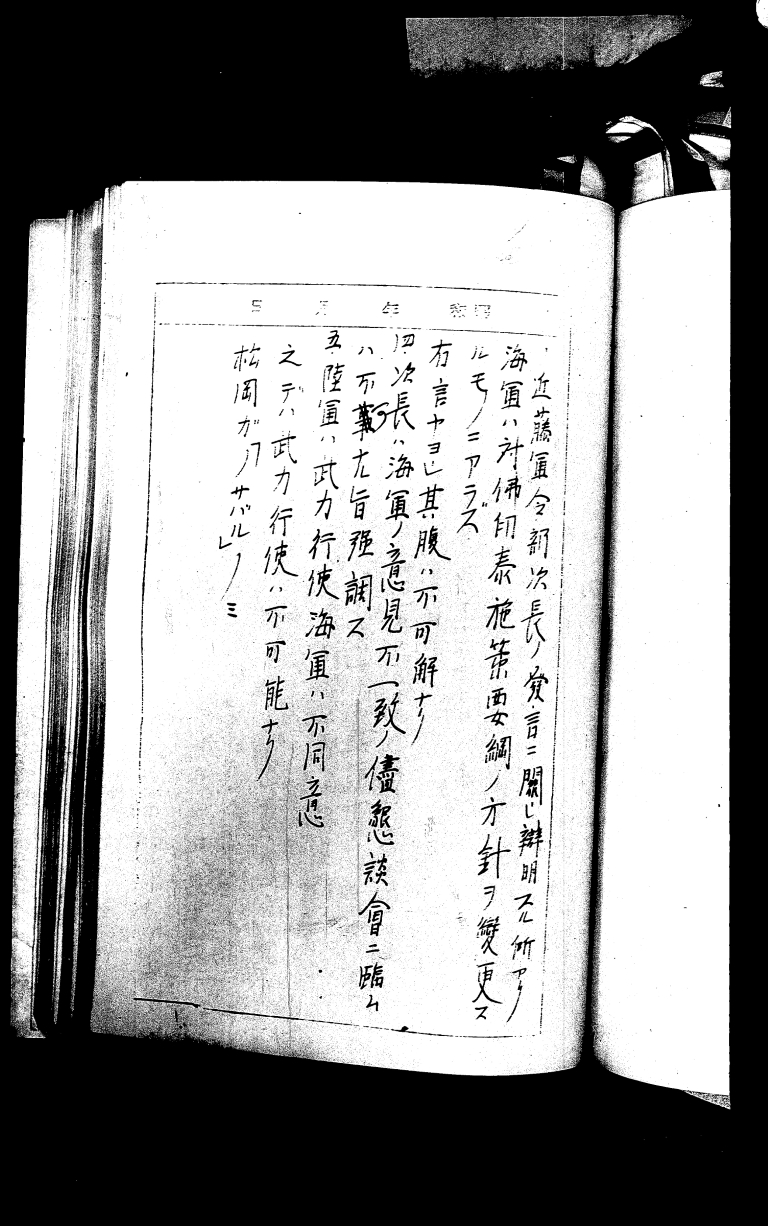 昭和 年 月 日
、近藤軍令部次長ノ發言ニ關シ辯明スル所アリ
海軍ハ対佛印泰施策要綱ノ方針ヲ變更ス
ルモノニアラズ
右言ヤヨシ其腹ハ不可解ナリ
四、次長ハ海軍ノ意見不一致ノ儘懇談會ニ臨ム
ハ不可ナル旨强調ス
五、陸軍ハ武力行使海軍ハ不同意
之デハ武力行使ハ不可能ナリ
松岡ガ「サバル」ノミ